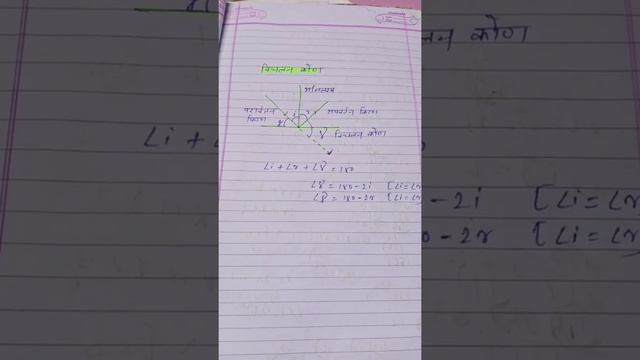 विचलन कोण
अभिलम्ब
परावर्तन किरण
अपवर्तन किरण
i
r
γ
δ विचलन कोण
∠i + ∠r + ∠δ = 180
∠δ = 180 - 2i [∠i = ∠r
∠δ = 180 - 2r [∠i = ∠r